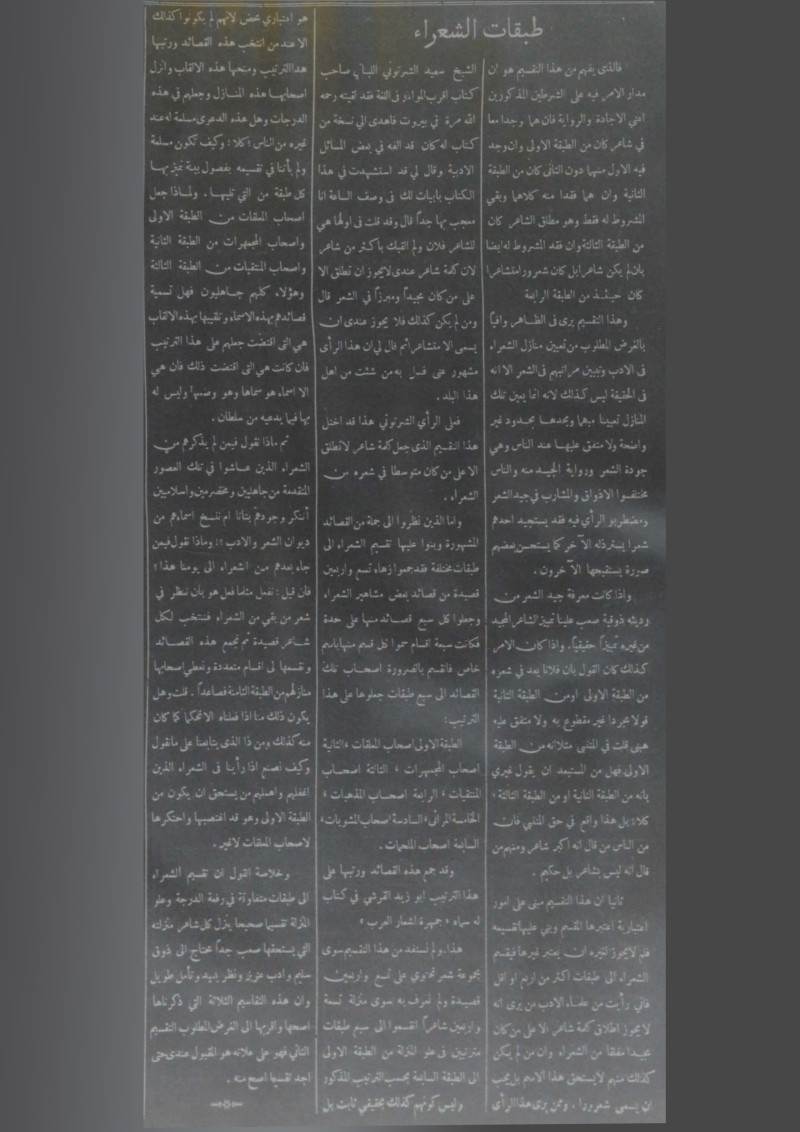 طبقات الشعراء
فالذى يفهم من هذا التقسيم هو ان
مدار الامر فيه على الشرطين المذكورين
اعني الاجادة والرواية فان هما وجدا معا
في شاعر كان من الطبقة الاولى وان وجد
فيه الاول منهما دون الثانى كان من الطبقة
الثانية وان هما فقدا منه كلاهما وبقي
المشروط له فقط وهو مطلق الشاعر كان
من الطبقة الثالثة وان فقد المشروط له ايضا
بان لم يكن شاعرا بل كان شعرورا متشاعرا
كان حينئذ من الطبقة الرابعة
وهذا التقسيم يرى فى الظاهر وافياً
بالغرض المطلوب من تعيين منازل الشعراء
فى الادب وتبيين مراتبهم فى الشعر الا انه
فى الحقيقة ليس كذلك لانه انما يعين تلك
المنازل تعيينا مبهما ويحدها بحدود غير
واضحة ولا متفق عليها عند الناس وهي
جودة الشعر ورواية الجيد منه والناس
مختلفوا الاذواق والمشارب في جيد الشعر
ومضطربو الرأي فيه فقد يستجيد احدهم
شعرا يسترذله الآخر كما يستحسن بعضهم
صورة يستقبحها الآخرون .
واذا كانت معرفة جيد الشعر من
رديئه ذوقية صعب علينا تمييز الشاعر المجيد
من غيره تمييزاً حقيقياً. واذا كان الامر
كذلك كان القول بان فلانا يعد في شعره
من الطبقة الاولى او من الطبقة الثانية
قولا مجردا غير مقطوع به ولا متفق عليه
هبنى قلت في المتنبى مثلا انه من الطبقة
الاولى فهل من المستبعد ان يقول غيري
بانه من الطبقة الثانية او من الطبقة الثالثة ؟
كلا! بل هذا واقع في حق المتنبي فان
من الناس من قال انه اكبر شاعر ومنهم من
قال انه ليس بشاعر بل حكيم .
ثانيا ان هذا التقسيم مبنى على امور
اعتبارية اعتبرها المقسم وبني عليها تقسيمه
فلم لا يجوز لغيره ان يعتبر غيرها فيقسم
الشعراء الى طبقات اكثر من اربع او اقل
فاني رأيت من علماء الادب من يرى انه
لا يجوز اطلاق كلمة شاعر الا على من كان
مجيدا مفلقا من الشعراء وان من لم يكن
كذلك منهم لا يستحق هذا الاسم بل يجب
ان يسمى شعرورا . وممن يرى هذا الرأى
الشيخ سعيد الشرتوني اللبناني صاحب
كتاب اقرب الموارد في اللغة فقد لقيته رحمه
الله مرة في بيروت فاهدى الي نسخة من
كتاب له كان قد الفه في بعض المسائل
الادبية وقال لي قد استشهدت في هذا
الكتاب بابيات لك في وصف الساعة انا
معجب بها جداً قال وقد قلت فى اولها هي
للشاعر فلان ولم القبك بأكثر من شاعر
لان كلمة شاعر عندى لا يجوز ان تطلق الا
على من كان مجيداً ومبرزاً في الشعر قال
ومن لم يكن كذلك فلا يجوز عندى ان
يسمى الا متشاعرا ثم قال لي ان هذا الرأى
مشهور عنى فسل به من شئت من اهل
هذا البلد .
فعلى الرأي الشرتوني هذا قد اختل
هذا التقسيم الذى جعل كلمة شاعر لا تطلق
الا على من كان متوسطا في شعره من
الشعراء .
واما الذين نظروا الى جملة من القصائد
المشهورة وبنوا عليها تقسيم الشعراء الى
طبقات مختلفة فقد جمعوا زهاء تسع واربعين
قصيدة من قصائد بعض مشاهير الشعراء
وجعلوا كل سبع قصائد منها على حدة
فكانت سبعة اقسام سموا كل قسم منها باسم
خاص فانقسم بالضرورة اصحاب تلك
القصائد الى سبع طبقات جعلوها على هذا
الترتيب :
الطبقة الاولى اصحاب المعلقات ، الثانية
اصحاب المجمهرات ، الثالثة اصحاب
المنتقيات ، الرابعة اصحاب المذهبات ،
الخامسة المراثي ، السادسة اصحاب المشوبات ،
السابعة اصحاب الملحمات .
وقد جمع هذه القصائد ورتبها على
هذا الترتيب ابو زيد القرشي في كتاب
له سماه « جمهرة اشعار العرب »
هذا . ولم نستفد من هذا التقسيم سوى
مجموعة شعر تحتوي على تسع واربعين
قصيدة ولم نعرف به سوى منزلة تسعة
واربعين شاعراً انقسموا الى سبع طبقات
مترتبين فى علو المنزلة من الطبقة الاولى
الى الطبقة السابعة بحسب الترتيب المذكور
وليس كونهم كذلك بحقيقي ثابت بل
هو اعتباري محض لانهم لم يكونوا كذلك
الا عند من انتخب هذه القصائد ورتبها
هذا الترتيب ومنحها هذه الالقاب وانزل
اصحابها هذه المنازل وجعلهم في هذه
الدرجات وهل هذه الدعوى مسلمة له عند
غيره من الناس ؟ كلا ! وكيف تكون مسلمة
ولم يأتنا في تقسيمه بفصول بينة تميز بها
كل طبقة من التي تليها . ولماذا جعل
اصحاب المعلقات من الطبقة الاولى
واصحاب المجمهرات من الطبقة الثانية
واصحاب المنتقيات من الطبقة الثالثة
وهؤلاء كلهم جاهليون فهل تسمية
قصائدهم بهذه الاسماء وتلقيبها بهذه الالقاب
هي التى اقتضت جعلهم على هذا الترتيب
فان كانت هي التى اقتضت ذلك فان هي
الا اسماء هو سماها وهو وضعها وليس له
بها فيما يدعيه من سلطان .
ثم ماذا نقول فيمن لم يذكرهم من
الشعراء الذين عاشوا في تلك العصور
المتقدمة من جاهليين ومخضرمين واسلاميين
أننكر وجودهم بتاتا ام ننسخ اسماءهم من
ديوان الشعر والادب ؟! وماذا نقول فيمن
جاء بعدهم من الشعراء الى يومنا هذا ؟
فان قيل : نفعل مثلما فعل هو بان ننظر في
شعر من بقي من الشعراء فننتخب لكل
شاعر قصيدة ثم نجمع هذه القصائد
ونقسمها الى اقسام متعددة ونعطي اصحابها
منازلهم من الطبقة الثامنة فصاعداً . قلت وهل
يكون ذلك منا اذا فعلناه الا تحكما كما كان
منه كذلك ومن ذا الذى يتابعنا على ما نقول
وكيف نصنع اذا رأينا فى الشعراء الذين
اغفلهم واهملهم من يستحق ان يكون من
الطبقة الاولى وهو قد اغتصبها واحتكرها
لاصحاب المعلقات لا غير .
وخلاصة القول ان تقسيم الشعراء
الى طبقات متفاوتة في رفعة الدرجة وعلو
المنزلة تقسيما صحيحا ينزل كل شاعر منزلته
التي يستحقها صعب جداً محتاج الى ذوق
سليم وادب غزير ونظر بعيد وتأمل طويل
وان هذه التقاسيم الثلاثة التي ذكرناها
اصحها واقربها الى الغرض المطلوب التقسيم
الثاني فهو على علاته هو المقبول عندى حتى
اجد تقسيما اصح منه .